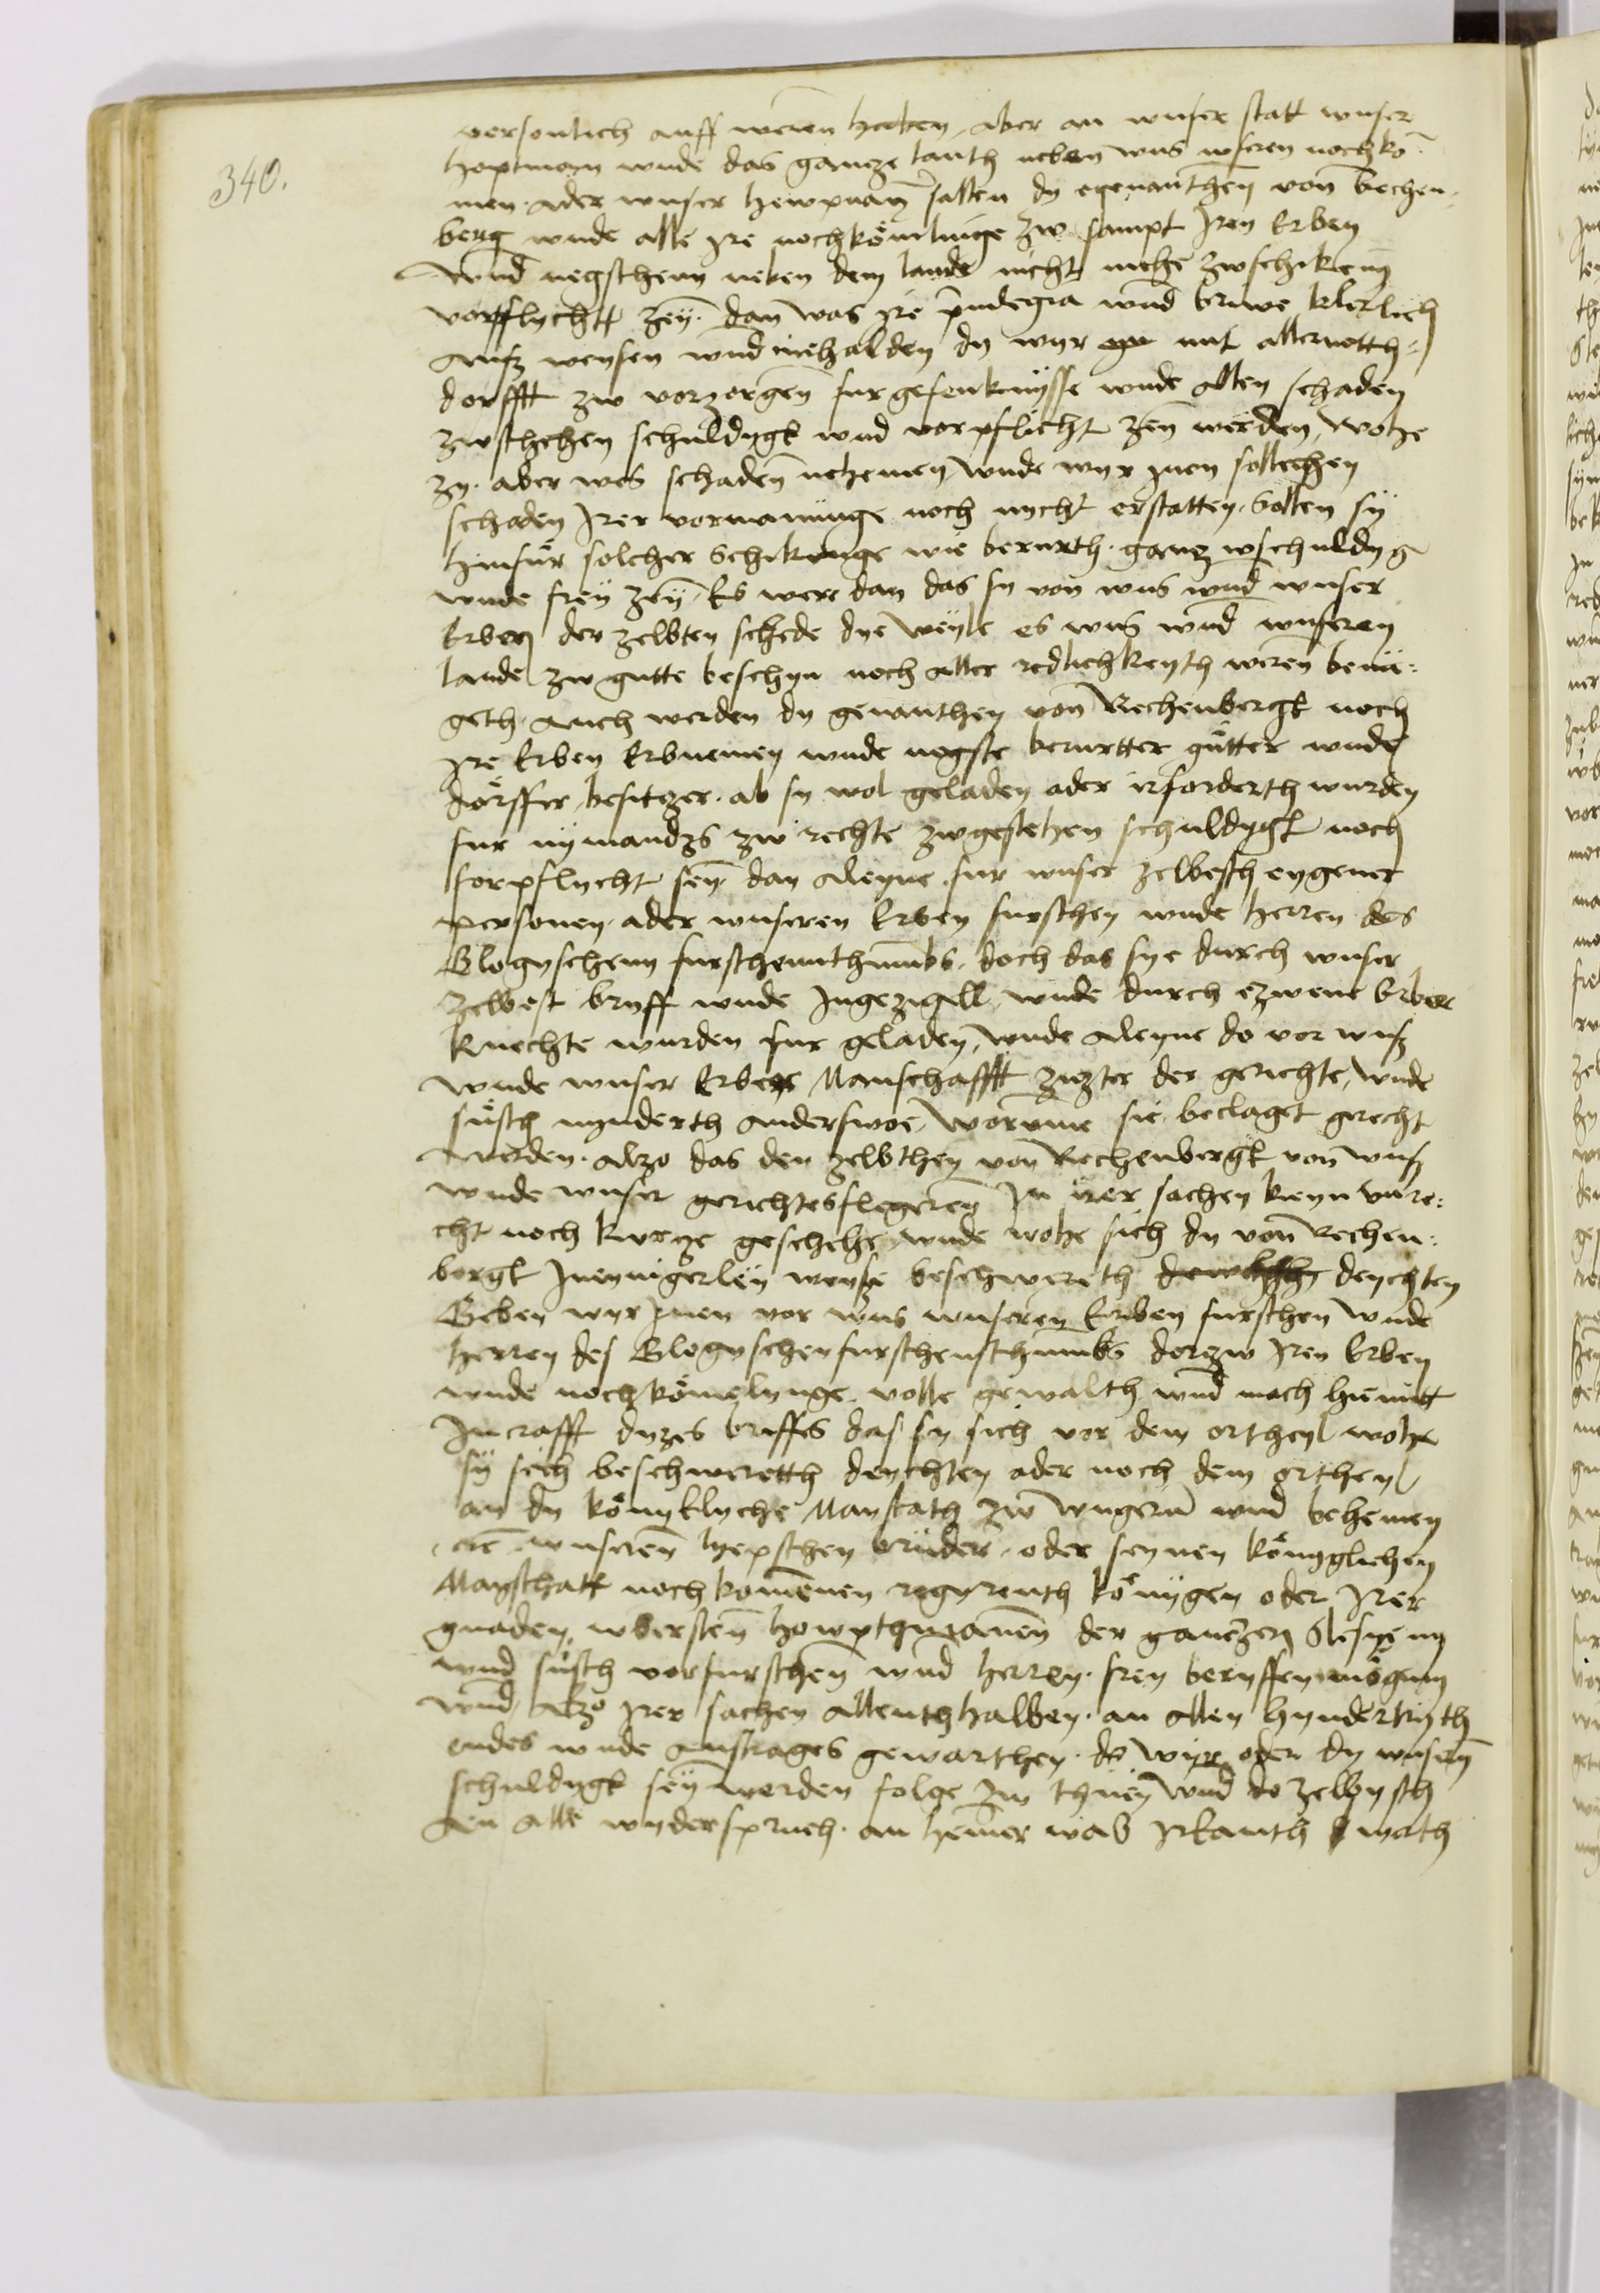 340.
personlich auff weren haben, aber an wnser statt wnser
hoptman wnde das gancze lanth neben wns wseren nochko
men. Ader wnser hewptman sallen dy egenanthen von Rechen
berg wnde alle Ire nochkömlinge zw sampt Iren Erben
wnd negschenn neben dem lande nicht mehe zwschiken
vorpflychtt zeÿ. dan was ire priuilegia wnd briwe klerlich
Auß weysen wnd inehalden dy wyr mit aller notth
dorfftt zw vorzorgen fur gefenknÿsse wnde allen schaden
zwschehen schuldygk wnd vorpflicht zein werden, wohe
zy. aber wes schaden nehemen wnde wyr Inen sollechen
schaden Irer vormanunge noch nycht erstatten. Sollen sÿ
hinfur solcher Schikunge wie berurth. gancz wschuldyg
wnde freÿ zeÿ. Es were dan das sy von wns wnd wnser
Erben der zelbten schede dye weÿle es wns wnd wnseren
lande zw gutte beschyn noch aller redlichkeyth weren benu
geth. Auch werden dy genanthen von Rechenbergk noch
Ire Erben Erbnemen wnde negste berurtter gütter wnde
dörffer besitczer. ab sy wol geladen ader irforderth wurden
fur nÿmandzs zw rechte zwgestehen schuldygk noch
forpflycht seÿ dan Aleyne fur wnser zelbesth eygener
personen. ader wnseren Erben furschen wnde herren des
Glogyschenn furschennthumbs. doch das sye durch wnser
zelbest bryff wnde Ingezigell wnde durch czwene Erber
knechte wurden fur geladen, wnde Aleyne do vor wnß
wnde wnser Erbere Manschafftt ziczter der gerichte, wnde
süsth nynderth anderswoe, worvmme sie beclaget gerecht
werden. Alzo das den zelbthen von Rechenbergk von wnß
wnde wnser gerichtesflegeren In irer sachen kleyn vnre
cht noch kurcze geschehe, wnde wohe sich dy von Rechen
bergk In eynigerleÿ weyße beschwereth deychten
Geben wyr Inen vor wns wnseren Erben furschen wnde
herren des Glogyschen furschensthumbs dorzw Iren Erben
wnde nochkömelynge volle gewalth wnd mach hiemitt
In crafft dyzes briffes das sy sich vor dem ortheyl wohe
sÿ sich beschweretth deychten ader noch dem ortheyl
an dy könyklyche Maystath zw wngern wnd behemen
etc wnseren lyepschen brüder. oder seynen königlichen
Mayschatt nochkomenen regyrenth könygen oder Irer
gnaden wbersten howptmanen der ganczen Slesyenn
wnd süsth vor furschen wnd herren. frey beruffen mögenn
wnd Alzo Irer sachen Allenthhalben. an allen hynderlisth
endes wnde austrages gewarthen. do wyr oder dy wnsern
schuldygk seÿ werden folge zw thuen wnd do zelbysth
gen alle wydersprueh. an hemer was Irkanth math